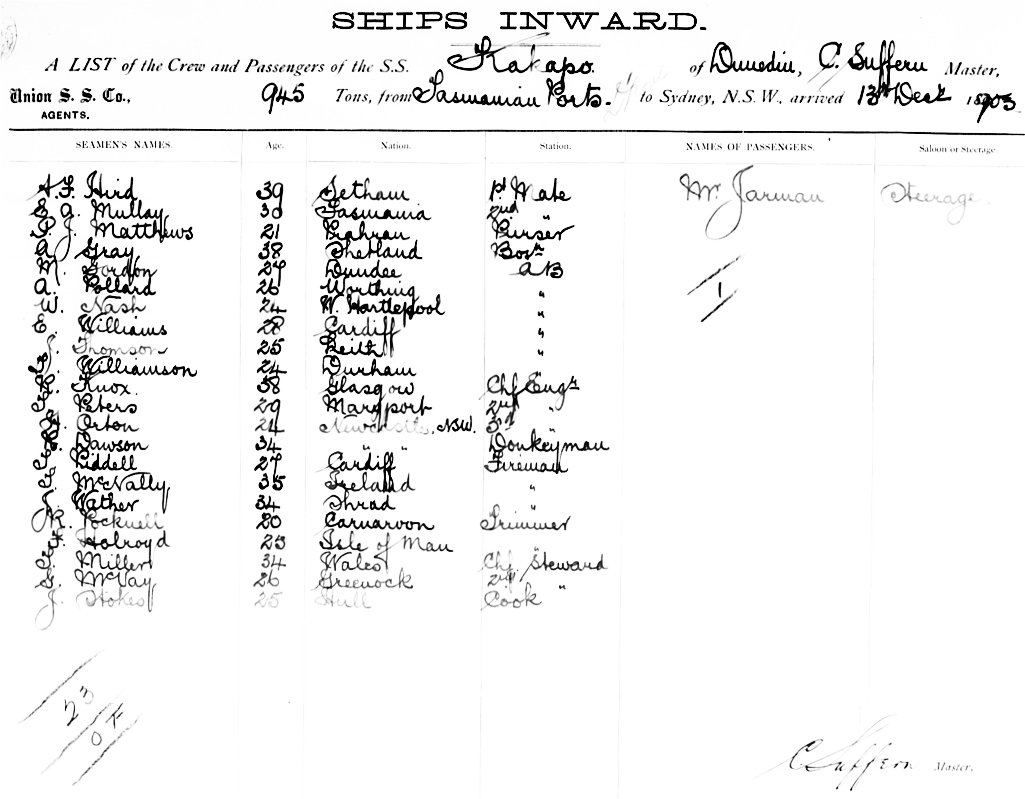 SHIPS INWARD.
A LIST of the Crew and Passengers of the S.S. Kakapo. of Dunedin, C. Suffern Master,
Union S. S. Co., 945 Tons, from Tasmanian Ports. to Sydney, N.S.W., arrived 13th Decr 1903
AGENTS.
SEAMEN'S NAMES. Age. Nation. Station. NAMES OF PASSENGERS. Saloon or Steerage
A. F. Hird 39 Jetham 1st Mate Mr Jarman Steerage
E. J. Mullay 30 Tasmania 2nd "
P. J. Matthews 21 Prahran Purser
A. Gray 38 Shetland Bosn
M. Gordon 27 Dundee AB
A. Pollard 26 Worthing "
W. Nash 24 W. Hartlepool "
E. Williams 28 Cardiff "
J. Thomson 25 Leith "
Williamson 24 Durham
Knox 38 Glasgow Chf Engr
Peters 29 Maryport 2nd "
Orton 24 Newcastle, NSW. 3rd "
Dawson 34 " " Donkeyman
Liddell 27 Cardiff Fireman
McNally 35 Ireland "
Wather 34 Shrad "
R. Pocknell 20 Carnarvon Trimmer
Holroyd 25 Isle of Man "
C. Miller 34 Wales Chf Steward
G. McVay 26 Greenock 2nd "
J. Stokes 25 Hull Cook
1
23
0 F
C Suffern Master.